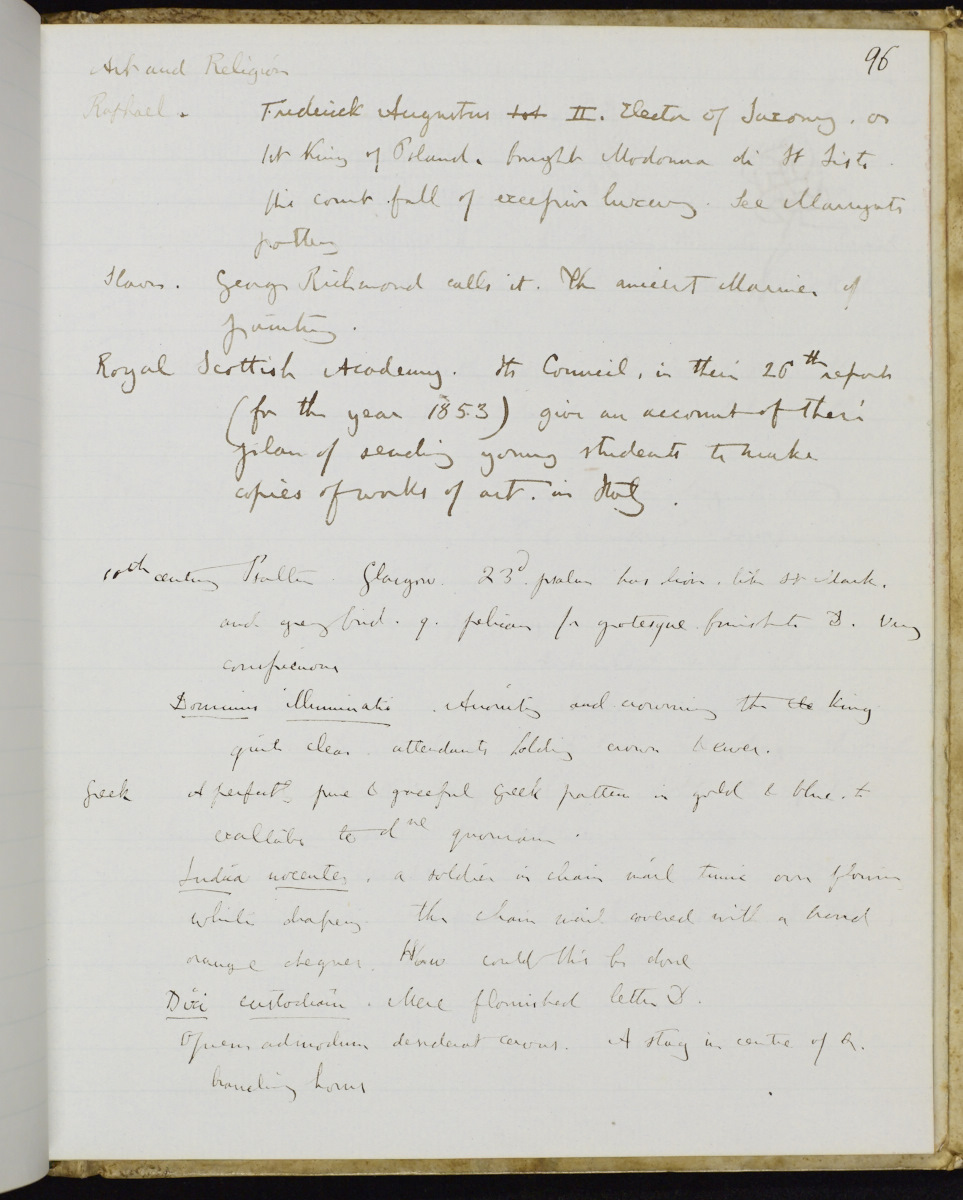 96
Art and Religion
Raphael. Frederick Augustus 1st II. Elector of Saxony. or
1st King of Poland. bought Madonna di St Sisto.
His court full of excessive luxury. See Marryats
pottery
Slaver. George Richmond calls it. The ancient Mariner of
painting.
Royal Scottish Academy. Its Council, in their 26th report
(for the year 1853) give an account of their
plan of sending young students to make
copies of works of art. in Italy.
10th century Psalter. Glasgow. 23d. psalm has lion. like St Mark.
and grey bird. q. pelican for grotesque. finishes to D. Very
conspicuous
Dominus illuminatio. Anointing and crowning the king
quite clear. attendants holding crown & ewer.
Greek A perfectly pure & graceful Greek pattern in gold & blue. to
exaltabo te dne quoniam.
Judica nocentes. a soldier in chain mail tunic over flowing
white drapery. The chain mail covered with a broad
orange chequer. How could this be done
Dixi custodiam. Mere flourished letter D.
Quem admodum desiderat cervus. A stag in centre of Q.
branching horns